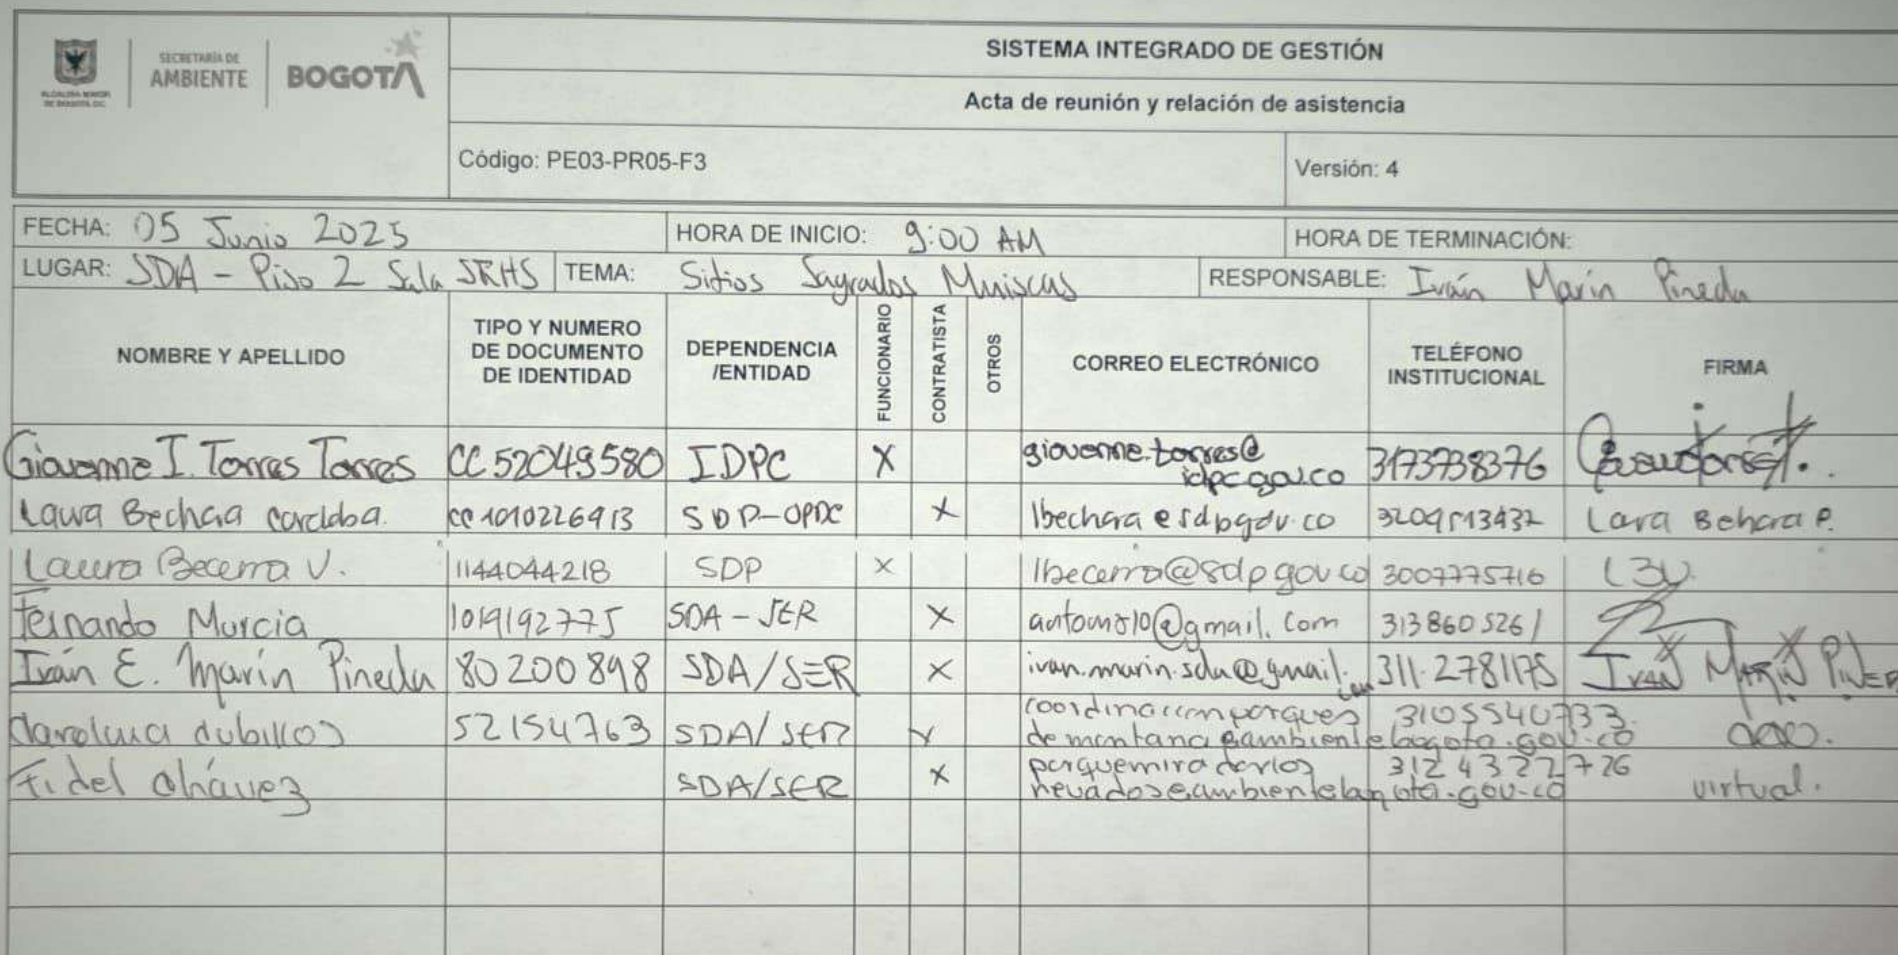 ALCALDÍA MAYOR
DE BOGOTÁ D.C.
SECRETARÍA DE
AMBIENTE
BOGOTÁ
SISTEMA INTEGRADO DE GESTIÓN
Acta de reunión y relación de asistencia
Código: PE03-PR05-F3 Versión: 4
FECHA: 05 Junio 2025 HORA DE INICIO: 9:00 AM HORA DE TERMINACIÓN:
LUGAR: SDA - Piso 2 Sala SRHS TEMA: Sitios Sagrados Muiscas RESPONSABLE: Iván Marín Pineda
NOMBRE Y APELLIDO TIPO Y NUMERO DE DOCUMENTO DE IDENTIDAD DEPENDENCIA /ENTIDAD FUNCIONARIO CONTRATISTA OTROS CORREO ELECTRÓNICO TELÉFONO INSTITUCIONAL FIRMA
Giovanne I. Torres Torres CC 52049580 IDPC X giovanne.torres@idpc.gov.co 3173738376
Laura Bechara cordoba. cc 1010226913 SDP-OPDC X lbechara@sdp.gov.co Lara Behara P.
Laura Becerra V. 1144044218 SDP X lbecerra@sdp.gov.co 3007775716 LBV
Fernando Murcia 1019192775 SDA-SER X @gmail.com 3138605261
Iván E. Marín Pineda 80200898 SDA/SER X ivan.marin.sda@gmail.com 311-2781175 IVAN MARIN PINED
52154763 SDA/SER X coordinacionparquesdemontana@ambientebogota.gov.co 3105540733.
Fidel Chávez SDA/SER X parquemiradorlosnevados@ambientebogota.gov.co 3124322726 virtual.